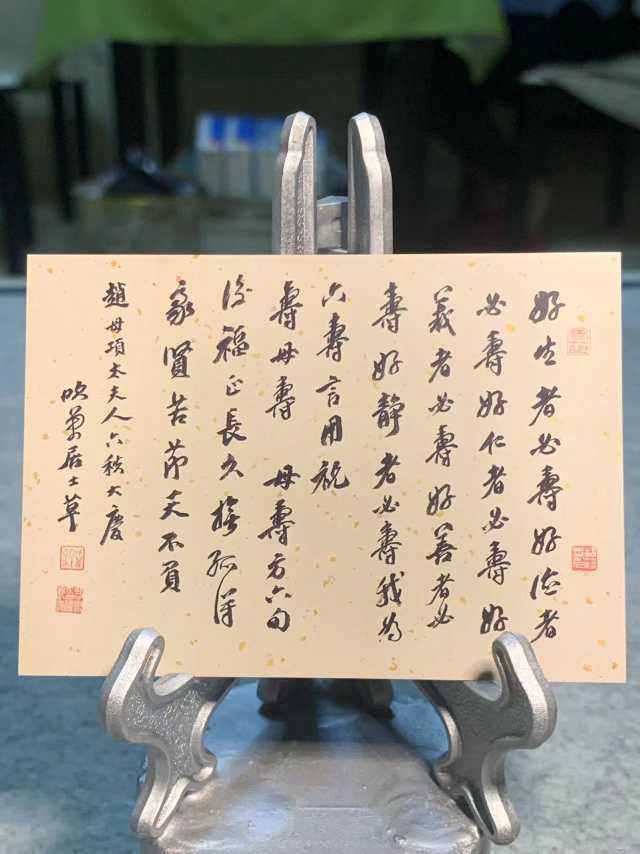 好生者必壽好德者
必壽好仁者必壽好
義者必壽好善者必
壽好靜者必壽我為
六壽言用祝
壽母壽 母壽方六旬
後福正長久撫孤得
象賢苦節天不負
趙母項太夫人六秩大慶
吹萬居士草